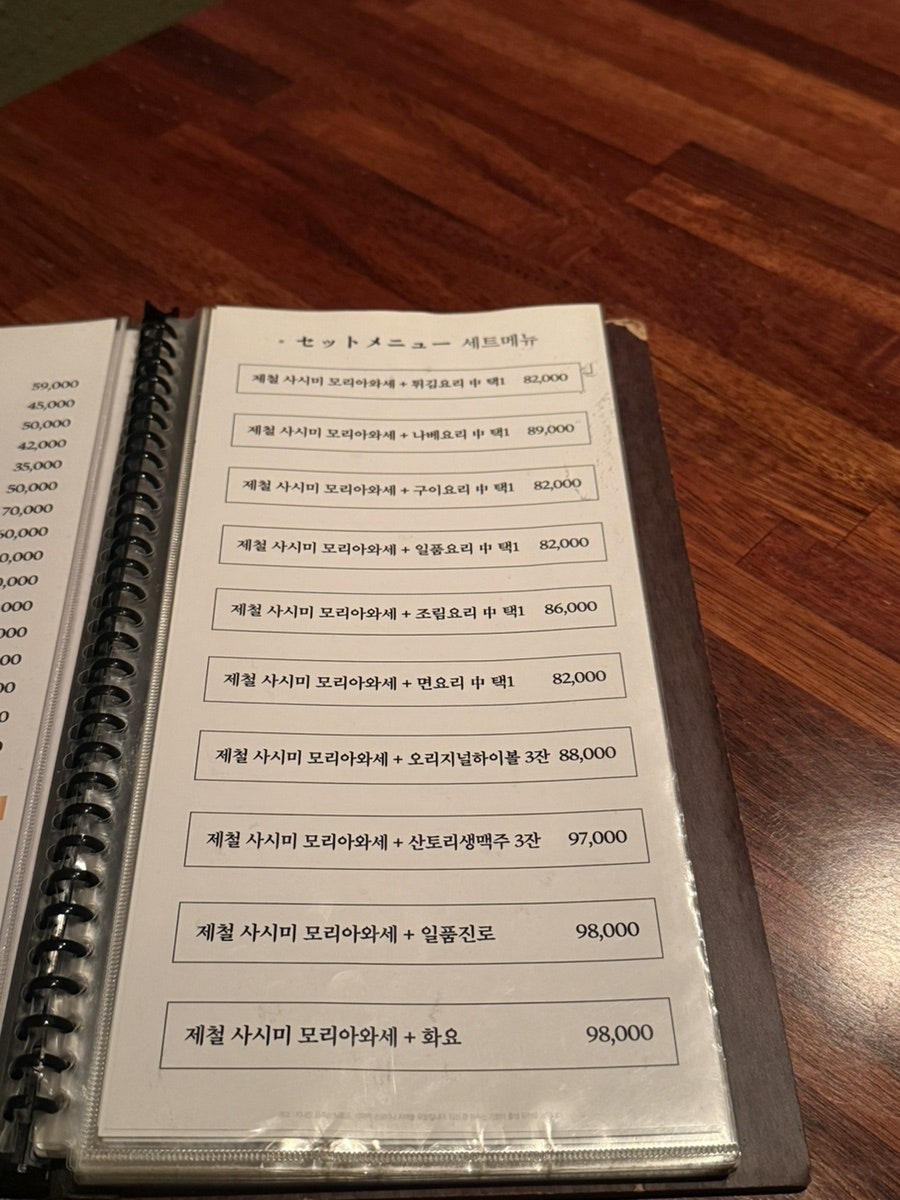 59,000
45,000
50,000
42,000
35,000
50,000
70,000
セットメニュー 세트메뉴
제철 사시미 모리아와세 + 튀김요리 中 택1 82,000
제철 사시미 모리아와세 + 나베요리 中 택1 89,000
제철 사시미 모리아와세 + 구이요리 中 택1 82,000
제철 사시미 모리아와세 + 일품요리 中 택1 82,000
제철 사시미 모리아와세 + 조림요리 中 택1 86,000
제철 사시미 모리아와세 + 면요리 中 택1 82,000
제철 사시미 모리아와세 + 오리지널하이볼 3잔 88,000
제철 사시미 모리아와세 + 산토리생맥주 3잔 97,000
제철 사시미 모리아와세 + 일품진로 98,000
제철 사시미 모리아와세 + 화요 98,000